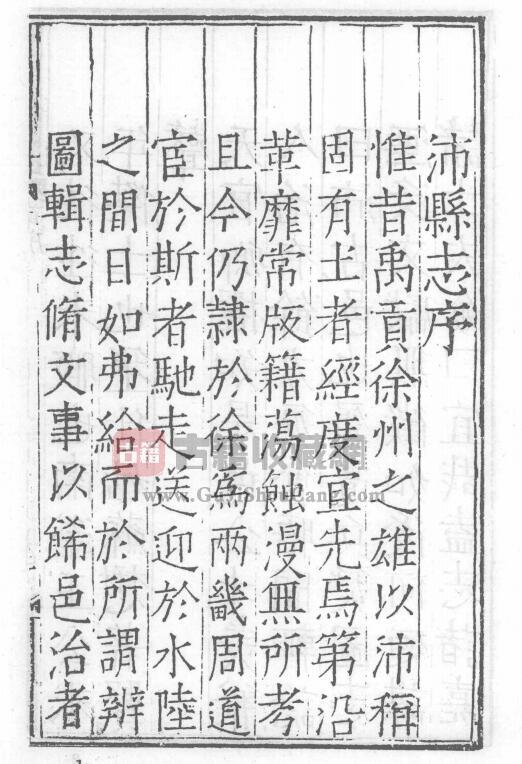 沛縣志序
惟昔禹貢徐州之雄以沛稱
固有土者經度宜先焉第沿
革靡常版籍蕩蝕漫無所考
且今仍隸於徐爲兩畿周道
宦於斯者馳走送迎於水陸
之間日如弗給而於所謂辨
圖輯志脩文事以餙邑治者
古籍
古籍收藏網
www.GuJiShouCang.com